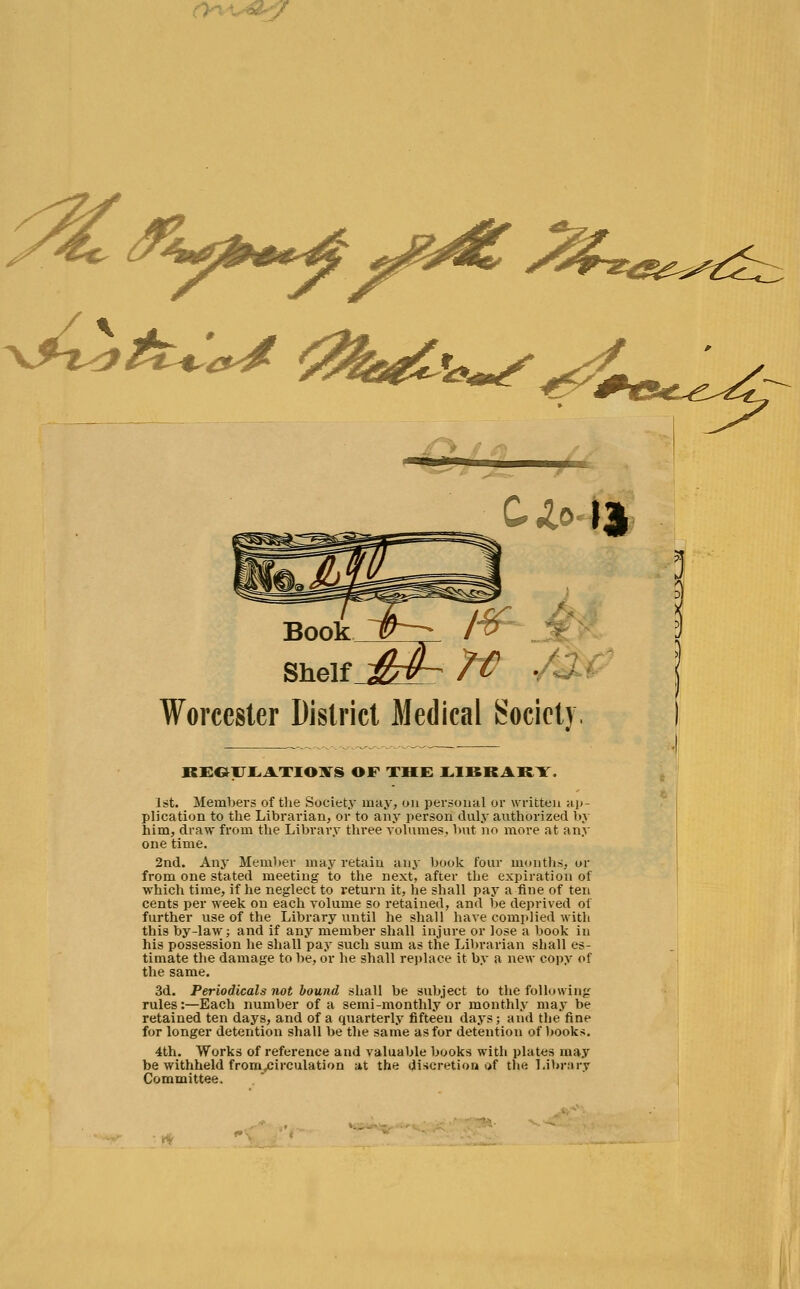 The Property of the Worcester
District Medical Society
C 20.13
No.
Book 6 18
Shelf 70
Worcester District Medical Society.
REGULATIONS OF THE LIBRARY.
1st. Members of the Society may, on personal or written ap-
plication to the Librarian, or to any person duly authorized by
him, draw from the Library three volumes, but no more at any
one time.
2nd. Any Member may retain any book four months, or
from one stated meeting to the next, after the expiration of
which time, if he neglect to return it, he shall pay a fine of ten
cents per week on each volume so retained, and be deprived of
further use of the Library until he shall have complied with
this by-law; and if any member shall injure or lose a book in
his possession he shall pay such sum as the Librarian shall es-
timate the damage to be, or he shall replace it by a new copy of
the same.
3d. Periodicals not bound shall be subject to the following
rules:—Each number of a semi-monthly or monthly may be
retained ten days, and of a quarterly fifteen days; and the fine
for longer detention shall be the same as for detention of books.
4th. Works of reference and valuable books with plates may
be withheld from circulation at the discretion of the Library
Committee.